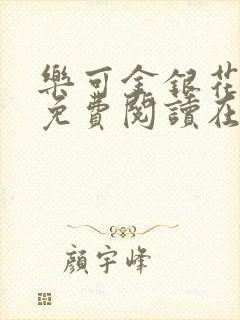 樂可金銀花
免費閱讀在
顔宇峰